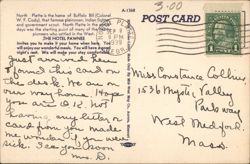 3-00
A-1368
North Platte is the home of Buffalo Bill (Colonel
W. F. Cody), that famous plainsman, Indian fighter,
and government scout. North Platte in the early
days was the starting point of many of the
pioneers who settled in the West.
THE HOTEL PAWNEE
Invites you to make it your home when here. You
will enjoy our wonderful meals. You will have a good
night's rest. We will make your stay comfortable.
POST CARD
PLATTE
SEP 8
9 PM
1939
NEBR.
Just arrived here
found this card on
the desk. We are
very way home. Hope
you are O.K. not
having any letter or
card from you made
me wonder if you were
sick. I'll see you soon
Mrs. D.
Miss Constance Collins
156 Mystic Valley
Parkway
West Medford
Mass.